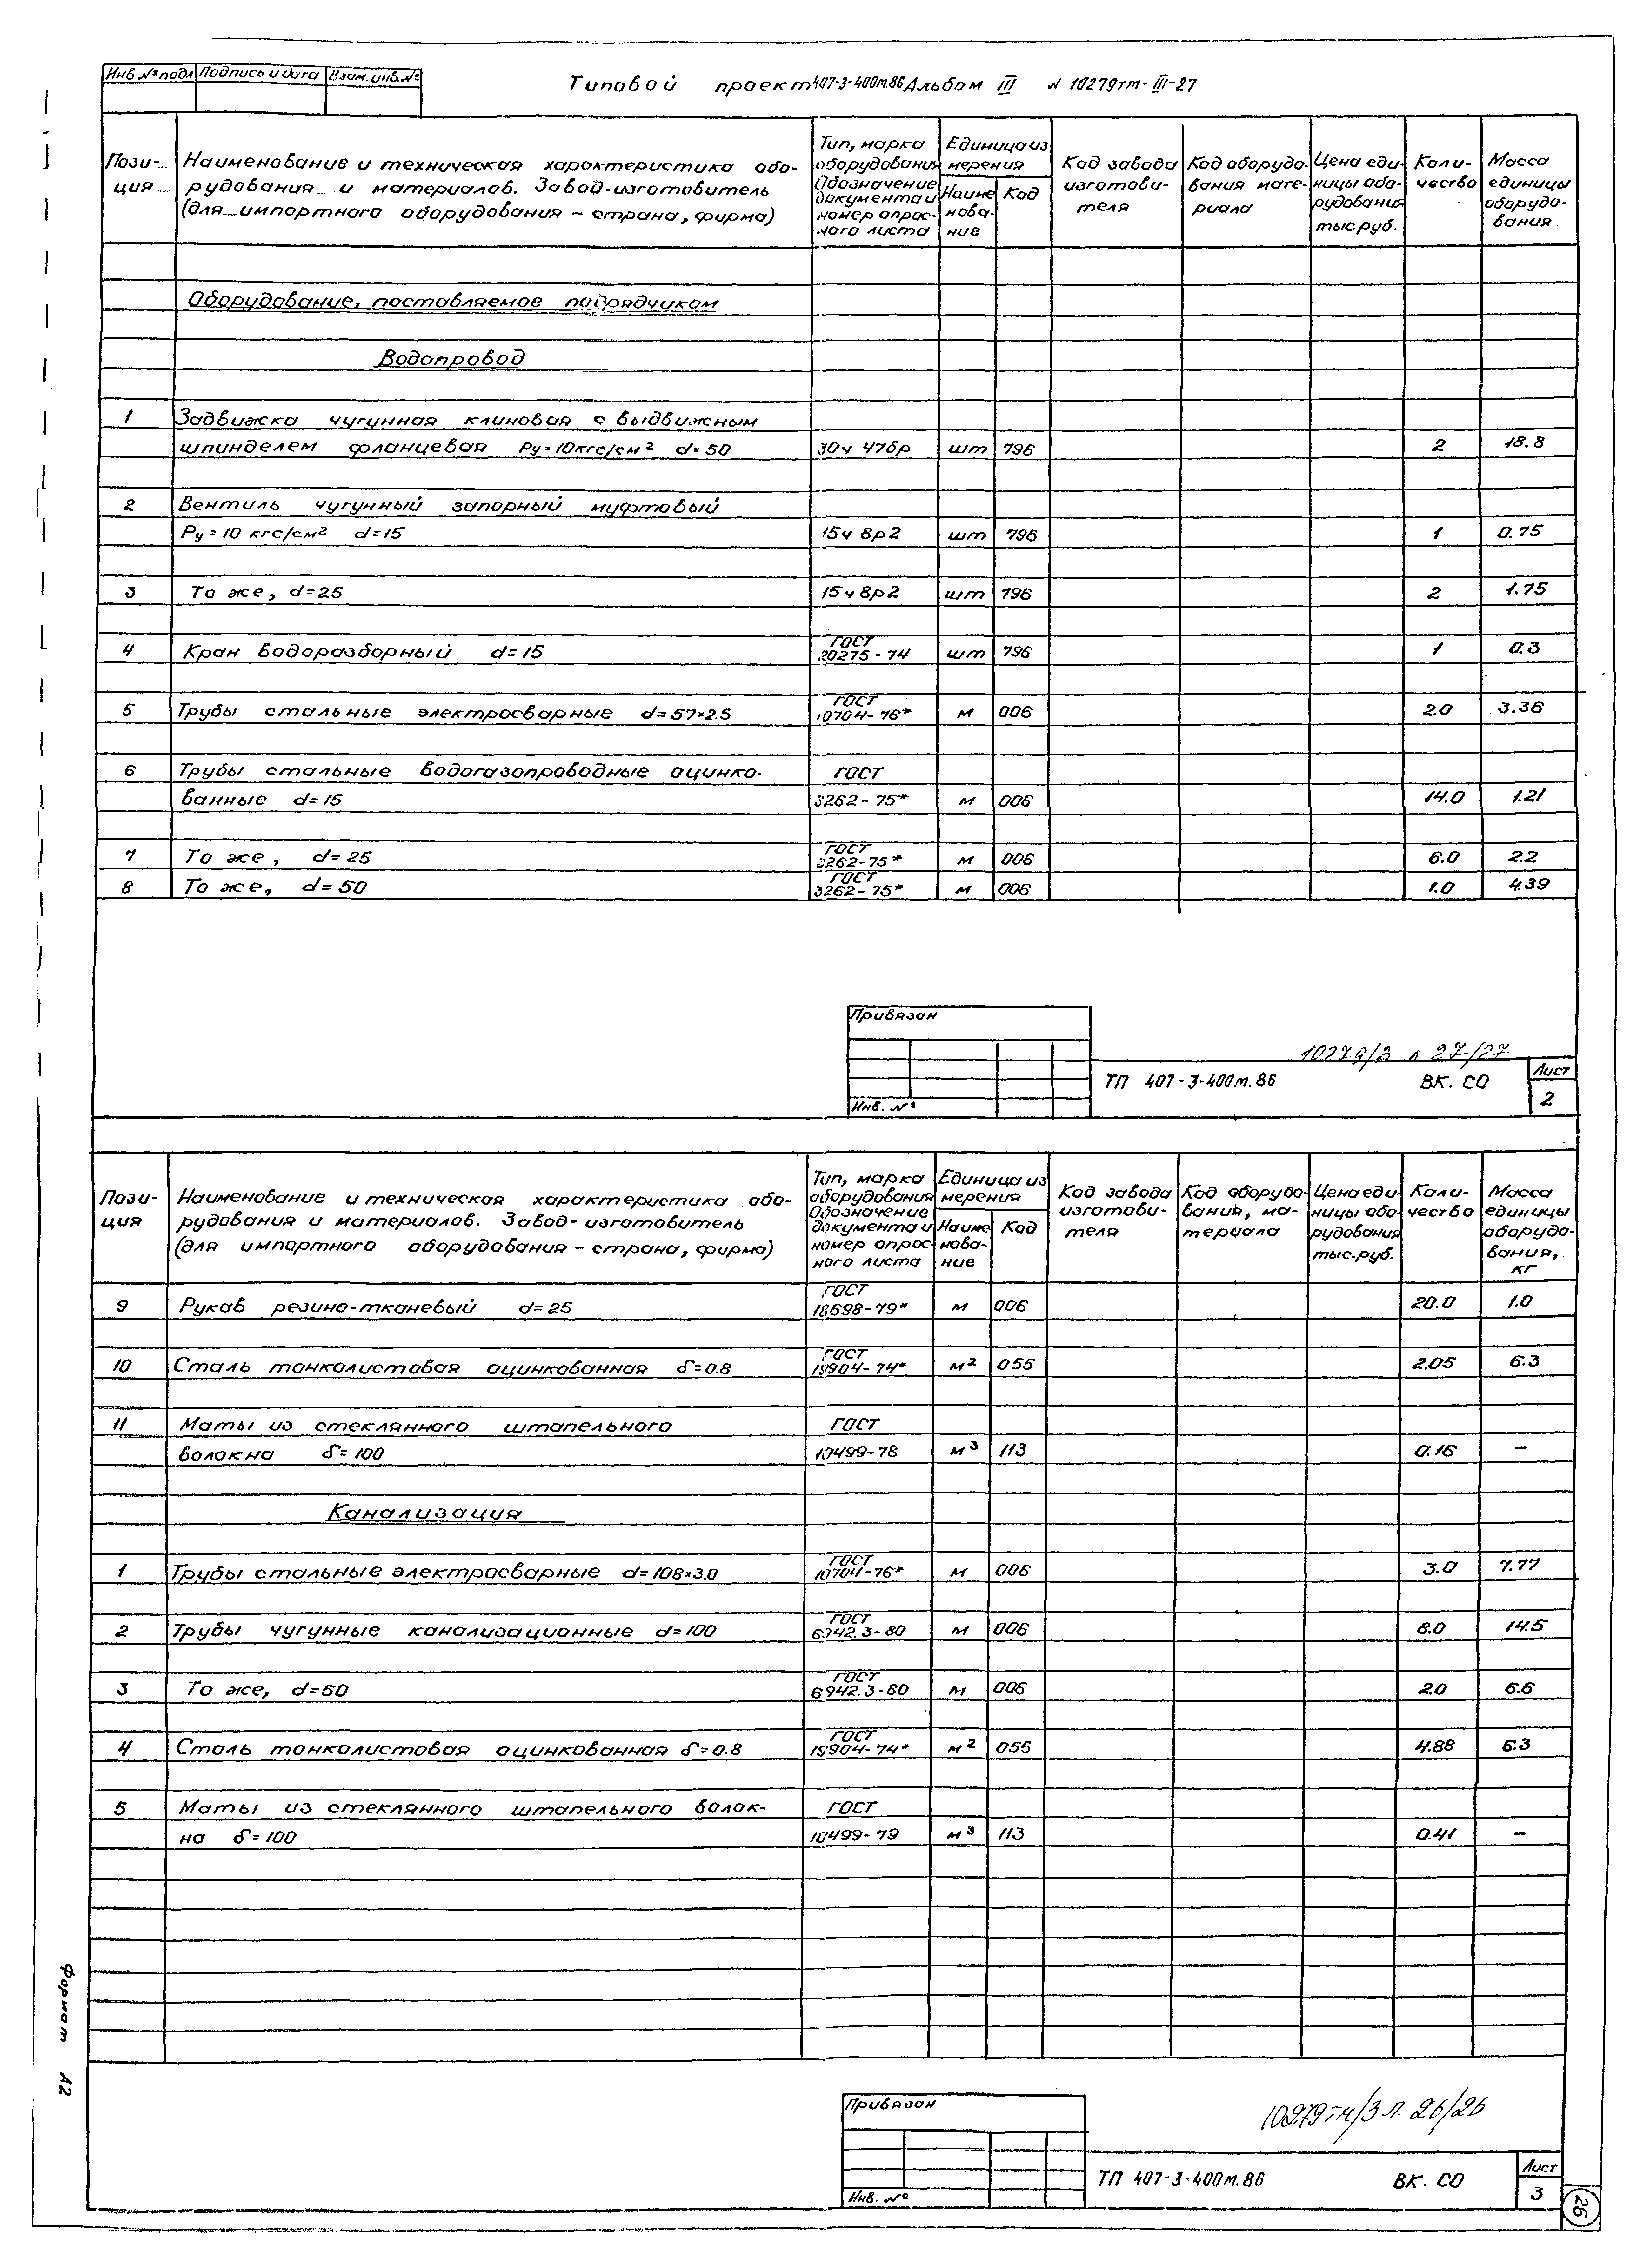 Инв. № подл Подпись и дата Взам. инв. №
Типовой проект 407-3-400м.86 Альбом III N 10279тм-III-27
Пози-
ция
Наименование и техническая характеристика обо-
рудования и материалов. Завод-изготовитель
(для импортного оборудования – страна, фирма)
Тип, марка
оборудования
Обозначение
документа и
номер опрос-
ного листа
Единица из
мерения
Наиме
нова-
ние
Код
Код завода
изготови-
теля
Код оборудо-
вания мате-
риала
Цена еди-
ницы обо-
рудования
тыс.руб.
Коли-
чество
Масса
единицы
оборудо-
вания
Оборудование, поставляемое подрядчиком
Водопровод
1 Задвижка чугунная клиновая с выдвижным
шпинделем фланцевая Ру=10кгс/см² d=50 30ч 47бр шт 796 2 18.8
2 Вентиль чугунный запорный муфтовый
Ру=10 кгс/см² d=15 15ч 8р2 шт 796 1 0.75
3 То же, d=25 15ч 8р2 шт 796 2 1.75
4 Кран водоразборный d=15 ГОСТ 20275-74 шт 796 1 0.3
5 Трубы стальные электросварные d=57×2.5 ГОСТ 10704-76* м 006 2.0 3.36
6 Трубы стальные водогазопроводные оцинко- ГОСТ
ванные d=15 3262-75* м 006 14.0 1.21
7 То же, d=25 ГОСТ 3262-75* м 006 6.0 2.2
8 То же, d=50 ГОСТ 3262-75* м 006 1.0 4.39
Привязан
Инв. №
10279/3 л 27/27
ТП 407-3-400м.86 ВК. СО
Лист
2
Пози-
ция
Наименование и техническая характеристика обо-
рудования и материалов. Завод-изготовитель
(для импортного оборудования – страна, фирма)
Тип, марка
оборудования
Обозначение
документа и
номер опрос-
ного листа
Единица из
мерения
Наиме
нова-
ние
Код
Код завода
изготови-
теля
Код оборудо-
вания, ма-
териала
Цена еди-
ницы обо-
рудования
тыс.руб.
Коли-
чество
Масса
единицы
оборудо-
вания,
кг
9 Рукав резино-тканевый d=25 ГОСТ 18698-79* м 006 20.0 1.0
10 Сталь тонколистовая оцинкованная δ=0.8 ГОСТ 19904-74* м² 055 2.05 6.3
11 Маты из стеклянного штапельного ГОСТ
волокна δ=100 10499-78 м³ 113 0.16 –
Канализация
1 Трубы стальные электросварные d=108×3.0 ГОСТ 10704-76* м 006 3.0 7.77
2 Трубы чугунные канализационные d=100 ГОСТ 6942.3-80 м 006 8.0 14.5
3 То же, d=50 ГОСТ 6942.3-80 м 006 2.0 6.6
4 Сталь тонколистовая оцинкованная δ=0.8 ГОСТ 19904-74* м² 055 4.88 6.3
5 Маты из стеклянного штапельного волок- ГОСТ
на δ=100 10499-79 м³ 113 0.41 –
Формат А2
Привязан
Инв. №
10279тм/3 л. 26/26
ТП 407-3-400м.86 ВК. СО
Лист
3
26